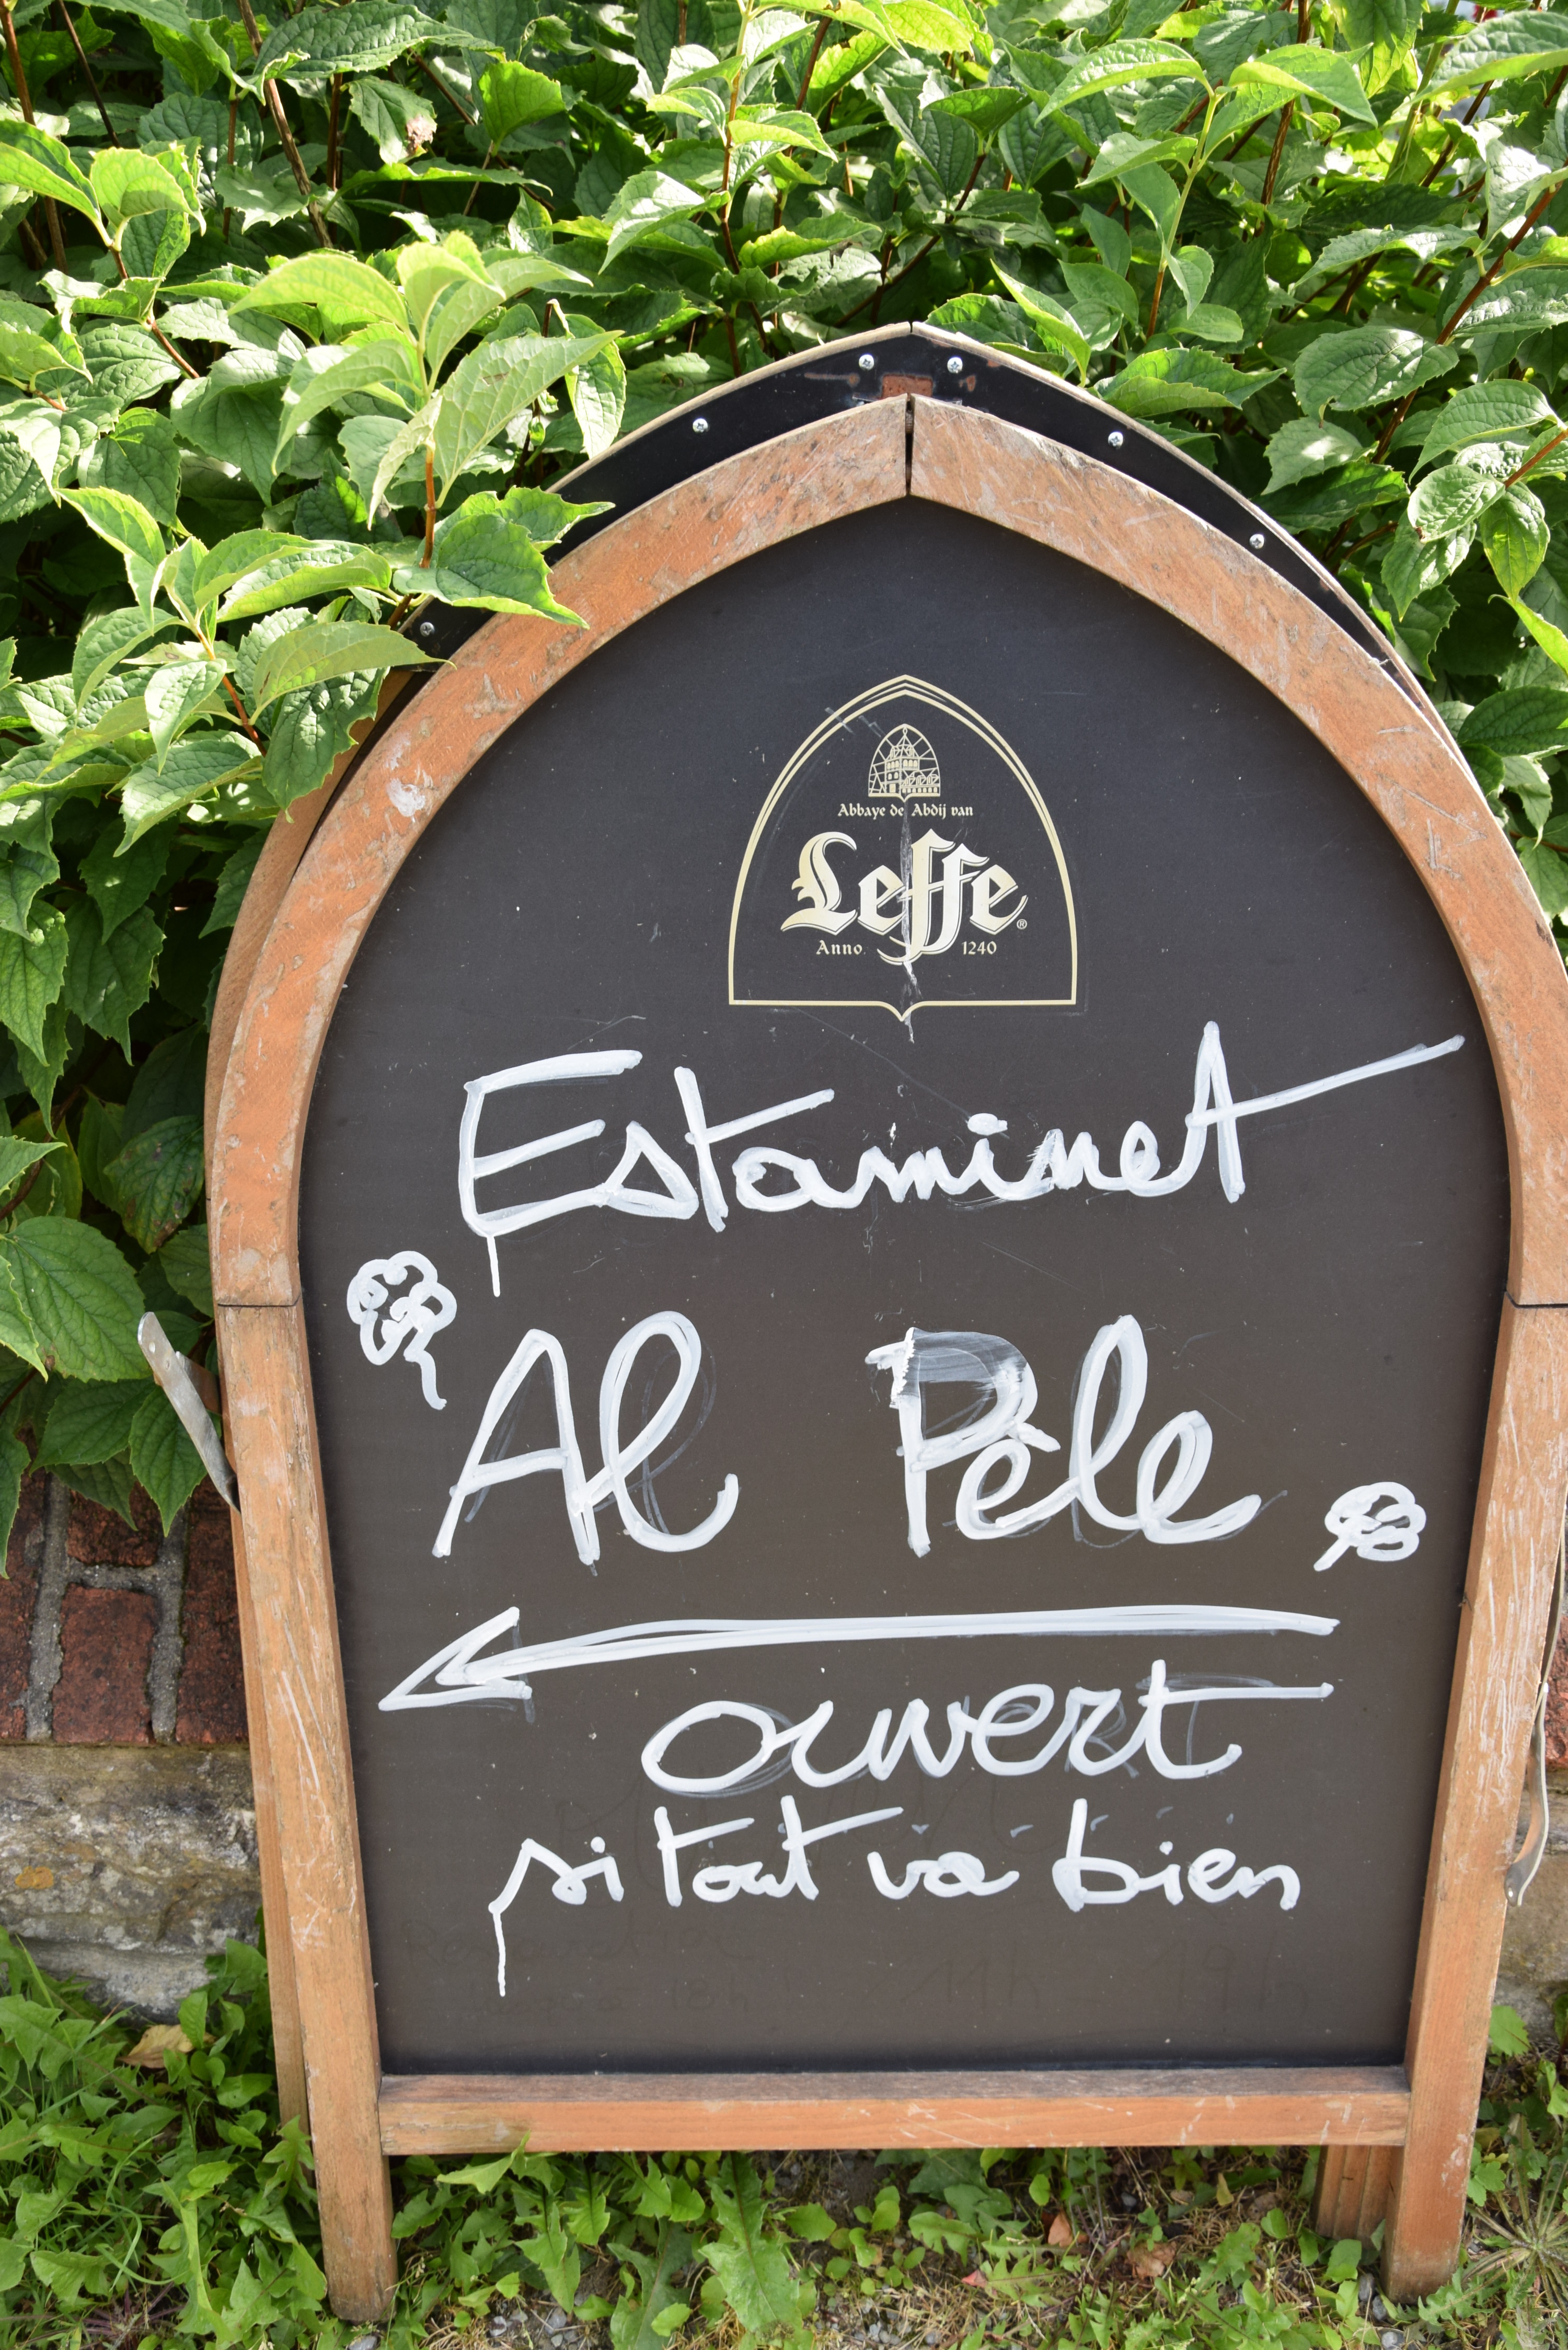 Abbaye de Abdij van
Leffe®
Anno 1240
Estaminet
Al Pèle
ouvert
si tout va bien